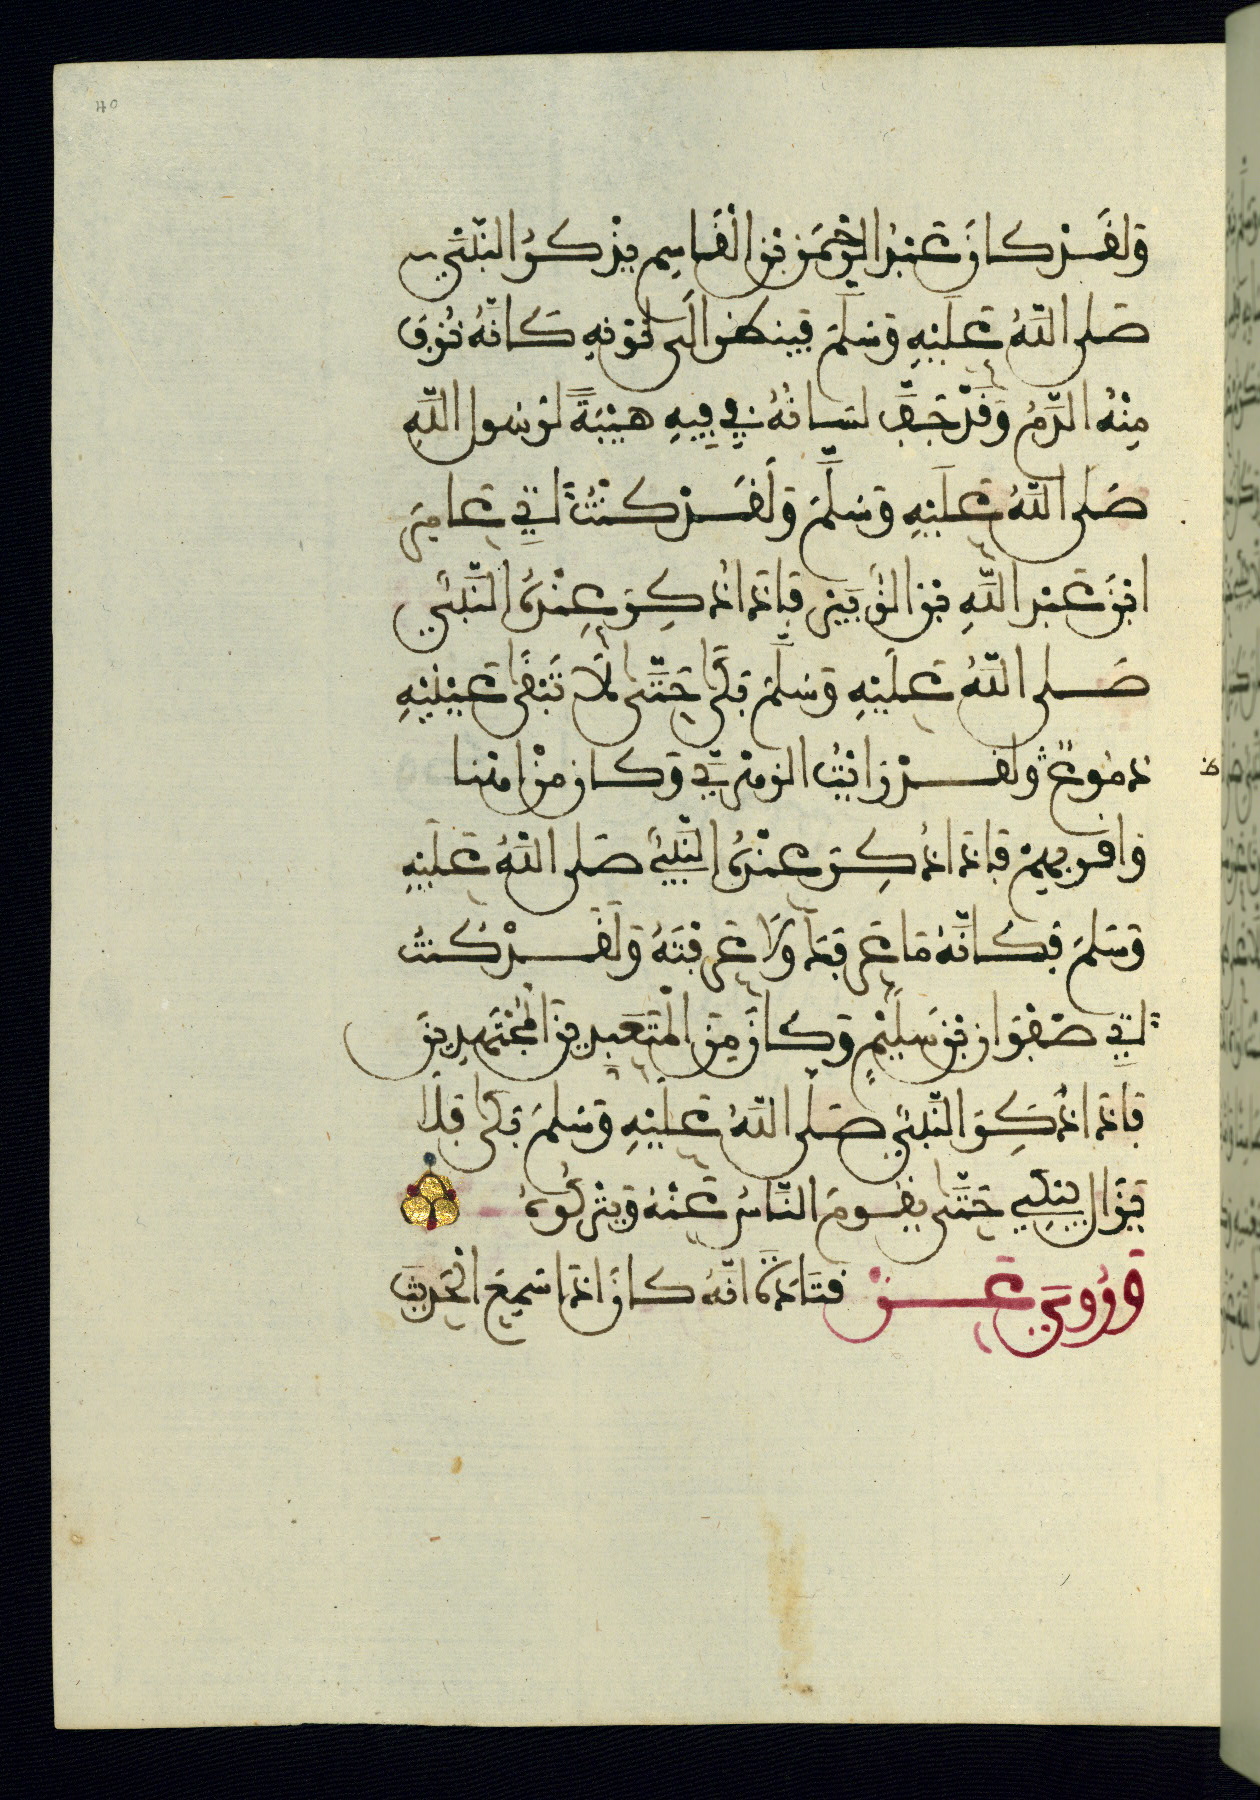 وَلَقَدْ كَانَ عَبْدُ الرَّحْمَنِ بْنُ الْقَاسِمِ يَذْكُرُ النَّبِيَّ
صَلَى اللَّهُ عَلَيْهِ وَسَلَّمَ فَيُنظَرُ الَى لَوْنِهِ كَانَّهُ نُزِفَ
مِنْهُ الدَّمُ وَقَدْ جَفَّ لِسَانُهُ فِي فِيهِ هَيْبَةً لِرَسُولِ اللَّهِ
صَلَى اللَّهُ عَلَيْهِ وَسَلَّمَ وَلَقَدْ كُنْتُ اتِي عَامِرَ
ابْنَ عَبْدِ اللَّهِ بْنِ الزُّبَيْرِ فَإِذَا ذُكِرَ عِنْدَهُ النَّبِيُّ
صَلَى اللَّهُ عَلَيْهِ وَسَلَّمَ بَكَى حَتَّى لَا تَبْقَى عَيْنَيْهِ
دُمُوعٌ وَلَقَدْ رَايْتُ الزُّهْرِيَّ وَكَانَ مِنْ اهْنَا
وَاقْرَبِهِمْ فَإِذَا ذُكِرَ عِنْدَهُ النَّبِيُّ صَلَى اللَّهُ عَلَيْهِ
وَسَلَّمَ فَكَانَّهُ مَا عَرَفَكَ وَلَا عَرَفْتَهُ وَلَقَدْ كُنْتُ
اتِي صَفْوَانَ بْنَ سُلَيْمٍ وَكَانَ مِنَ الْمُتَعَبِّدِينَ الْمُجْتَهِدِينَ
فَإِذَا ذُكِرَ النَّبِيُّ صَلَى اللَّهُ عَلَيْهِ وَسَلَّمَ بَكَى فَلَا
يَزَالُ يَبْكِي حَتَّى يَقُومَ النَّاسُ عَنْهُ وَيَتْرُكُوهُ
وَرُوِيَ عَنْ قَتَادَةَ انَّهُ كَانَ اذَا سَمِعَ الْحَدِيثَ